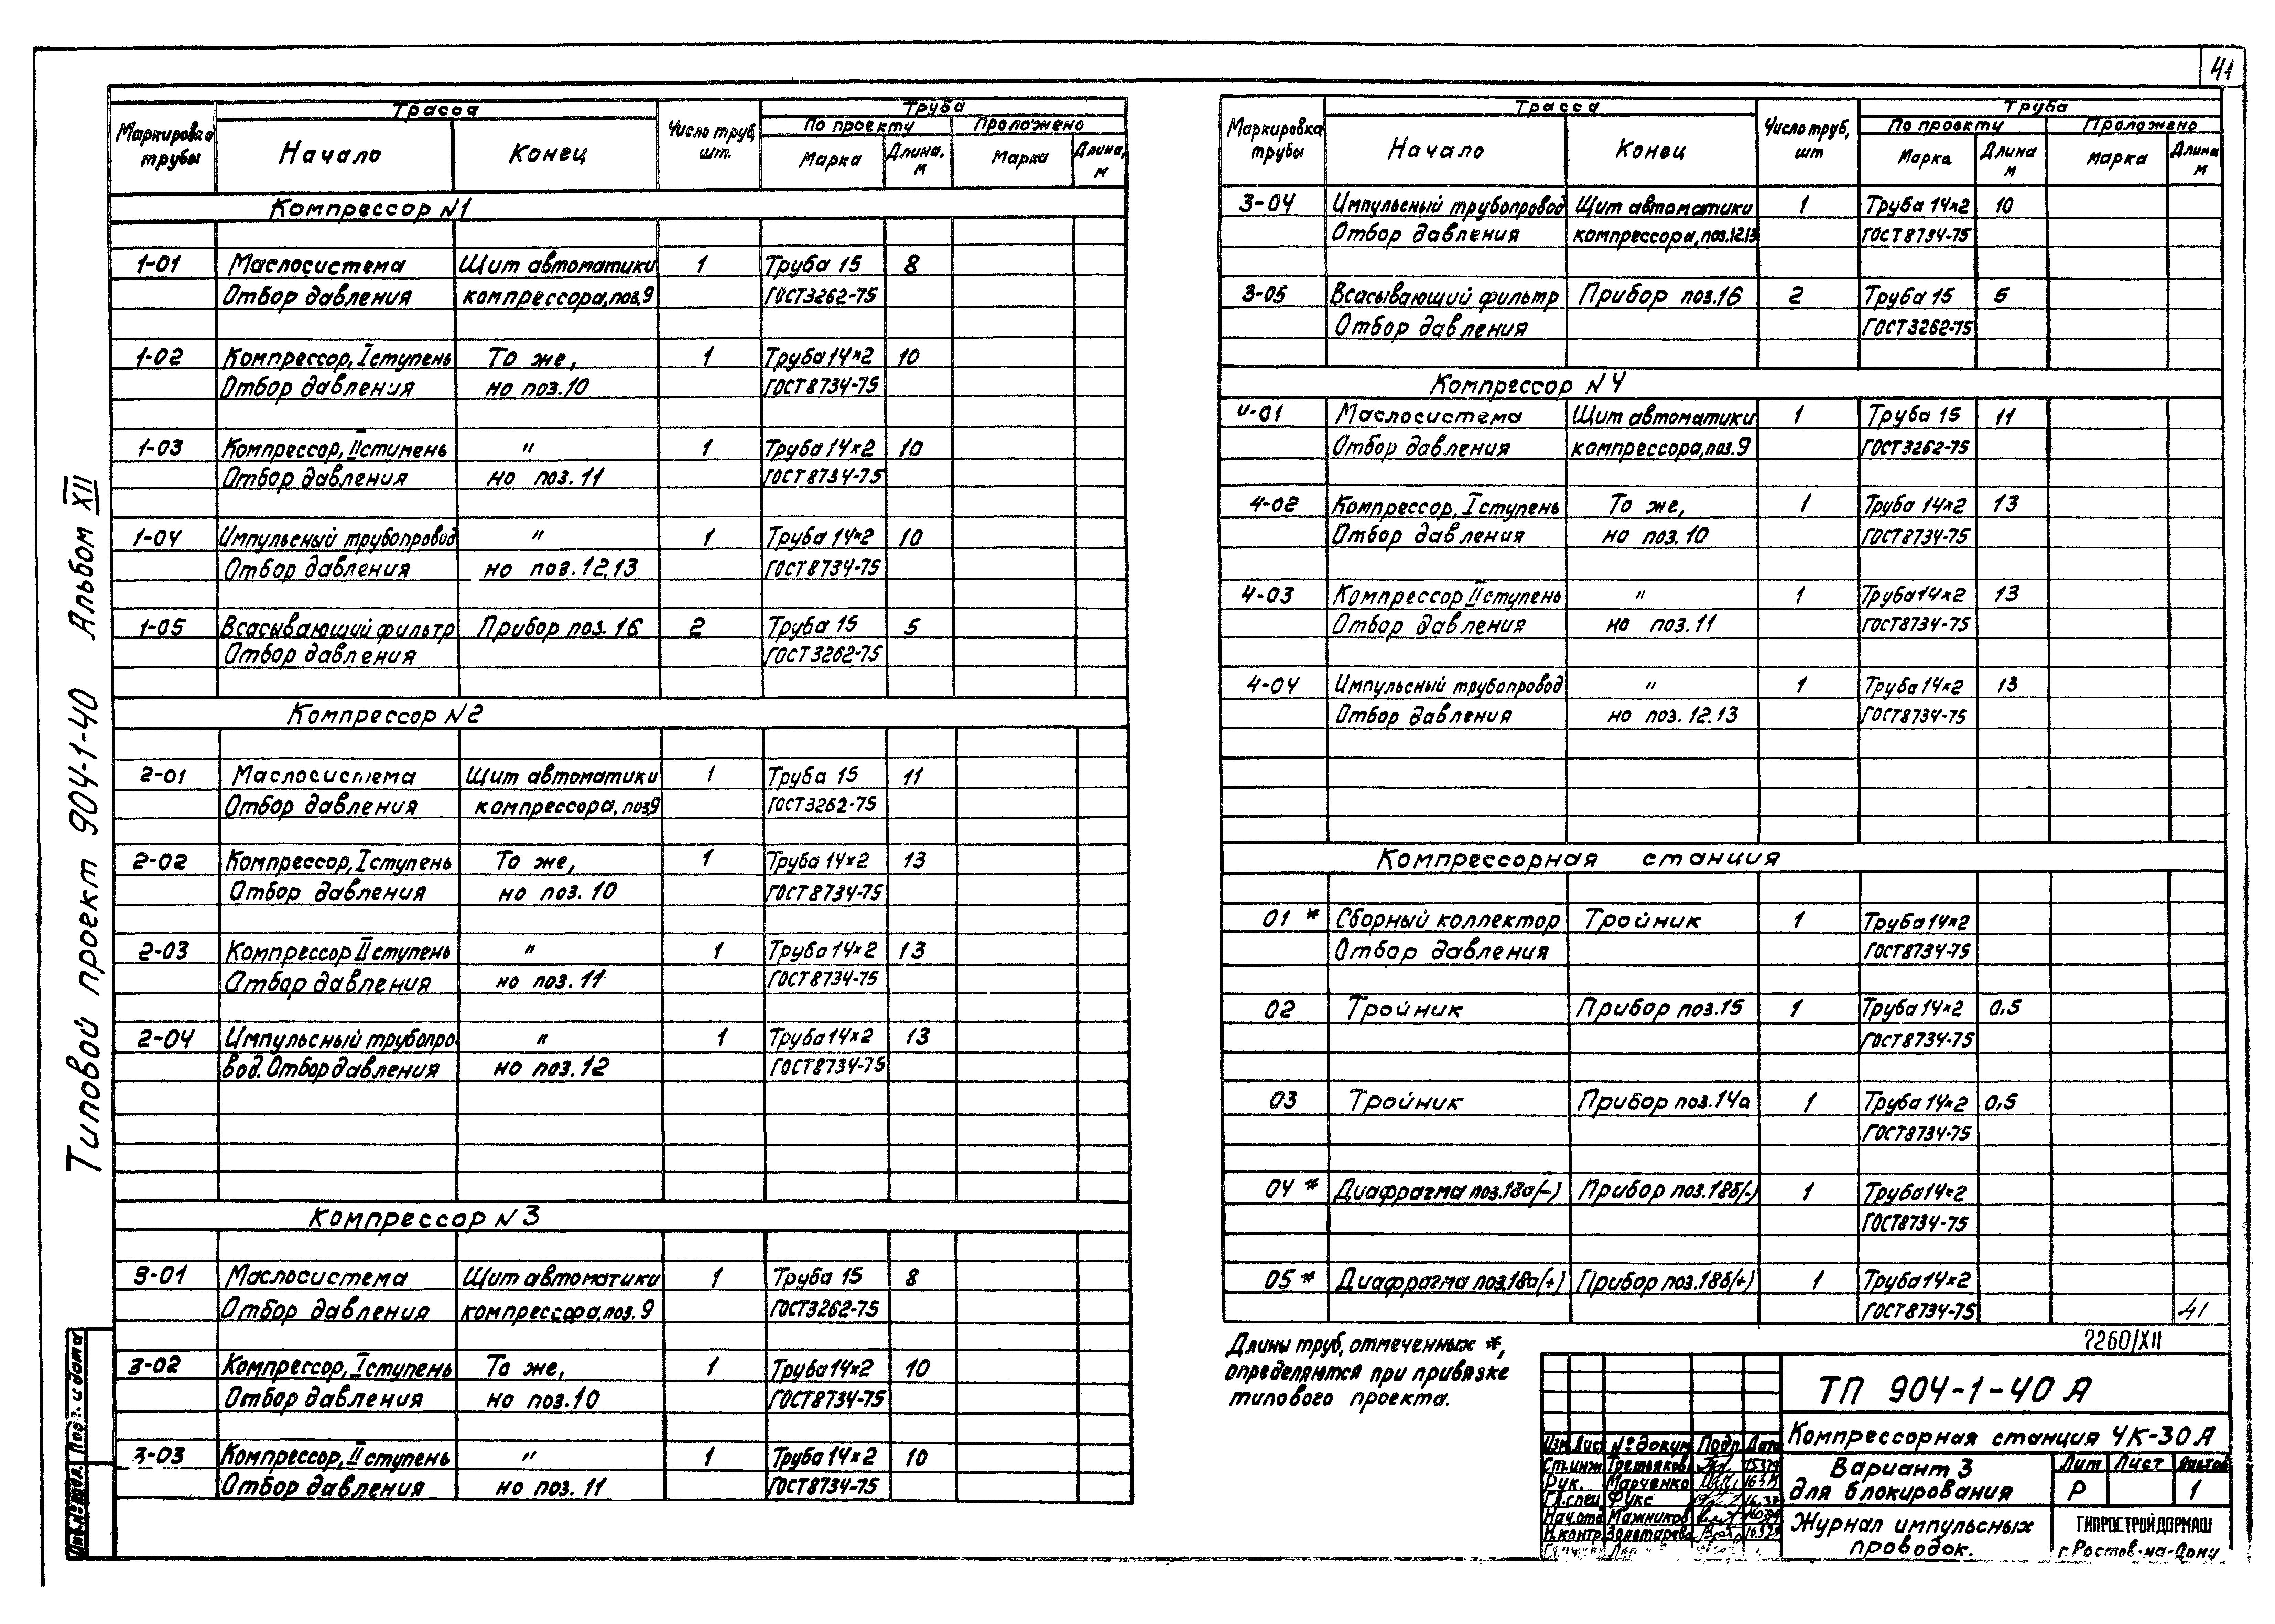 41
Типовой проект 904-1-40 Альбом XII
Маркировка трубы
Трасса
Начало
Конец
Число труб, шт.
Труба
По проекту
Проложено
Марка
Длина, м
Марка
Длина, м
Компрессор N1
1-01 Маслосистема Щит автоматики 1 Труба 15 8
Отбор давления компрессора, поз.9 ГОСТ3262-75
1-02 Компрессор, I ступень То же, 1 Труба 14×2 10
Отбор давления но поз.10 ГОСТ8734-75
1-03 Компрессор, II ступень " 1 Труба 14×2 10
Отбор давления но поз. 11 ГОСТ8734-75
1-04 Импульсный трубопровод " 1 Труба 14×2 10
Отбор давления но поз. 12,13 ГОСТ8734-75
1-05 Всасывающий фильтр Прибор поз. 16 2 Труба 15 5
Отбор давления ГОСТ3262-75
Компрессор N2
2-01 Маслосистема Щит автоматики 1 Труба 15 11
Отбор давления компрессора, поз.9 ГОСТ3262-75
2-02 Компрессор, I ступень То же, 1 Труба 14×2 13
Отбор давления но поз. 10 ГОСТ8734-75
2-03 Компрессор II ступень " 1 Труба 14×2 13
Отбор давления но поз. 11 ГОСТ8734-75
2-04 Импульсный трубопро- " 1 Труба 14×2 13
вод. Отбор давления но поз. 12 ГОСТ8734-75
Компрессор N3
3-01 Маслосистема Щит автоматики 1 Труба 15 8
Отбор давления компрессора, поз. 9 ГОСТ3262-75
3-02 Компрессор, I ступень То же, 1 Труба 14×2 10
Отбор давления но поз.10 ГОСТ8734-75
3-03 Компрессор, II ступень " 1 Труба 14×2 10
Отбор давления но поз. 11 ГОСТ8734-75
Маркировка трубы
Трасса
Начало
Конец
Число труб, шт
Труба
По проекту
Проложено
Марка
Длина м
Марка
Длина м
3-04 Импульсный трубопровод Щит автоматики 1 Труба 14×2 10
Отбор давления компрессора, поз.12.13 ГОСТ8734-75
3-05 Всасывающий фильтр Прибор поз.16 2 Труба 15 5
Отбор давления ГОСТ3262-75
Компрессор N4
4-01 Маслосистема Щит автоматики 1 Труба 15 11
Отбор давления компрессора, поз.9 ГОСТ3262-75
4-02 Компрессор, I ступень То же, 1 Труба 14×2 13
Отбор давления но поз. 10 ГОСТ8734-75
4-03 Компрессор II ступень " 1 Труба 14×2 13
Отбор давления но поз. 11 ГОСТ8734-75
4-04 Импульсный трубопровод " 1 Труба 14×2 13
Отбор давления но поз. 12.13 ГОСТ8734-75
Компрессорная станция
01 * Сборный коллектор Тройник 1 Труба 14×2
Отбор давления ГОСТ8734-75
02 Тройник Прибор поз.15 1 Труба 14×2 0,5
ГОСТ8734-75
03 Тройник Прибор поз.14а 1 Труба 14×2 0,5
ГОСТ8734-75
04 * Диафрагма поз.18а(-) Прибор поз.18б(-) 1 Труба 14×2
ГОСТ8734-75
05 * Диафрагма поз.18а(+) Прибор поз.18б(+) 1 Труба 14×2
ГОСТ8734-75 41
Длины труб, отмеченных *,
определяются при привязке
типового проекта.
7260/XII
ТП 904-1-40 А
Компрессорная станция 4К-30А
Изм Лист № докум Подп. Дата
Ст.инж Третьякова
Рук. Марченко
Гл.спец Фукс
Нач.отд Мажников
Н.контр Золотарева
Вариант 3
для блокирования
Лит Лист Листов
Р 1
Журнал импульсных
проводок.
ГИПРОСТРОЙДОРМАШ
г.Ростов-на-Дону
Подп. и дата
Инв.№ подл.